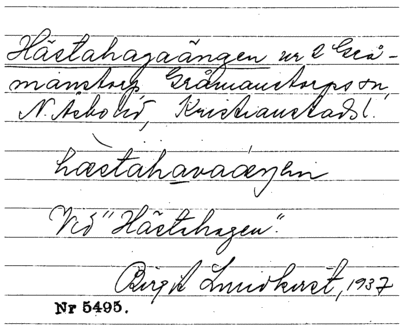 Hästahagaängen nr 2 Grå-
manstorp Gråmanstorps sn,
N. Åsbo hd, Kristianstads l.
hàstahavaáeŋen
Vid "Hästahagen".
Birgit Lundkvist, 1937
Nr 5495.